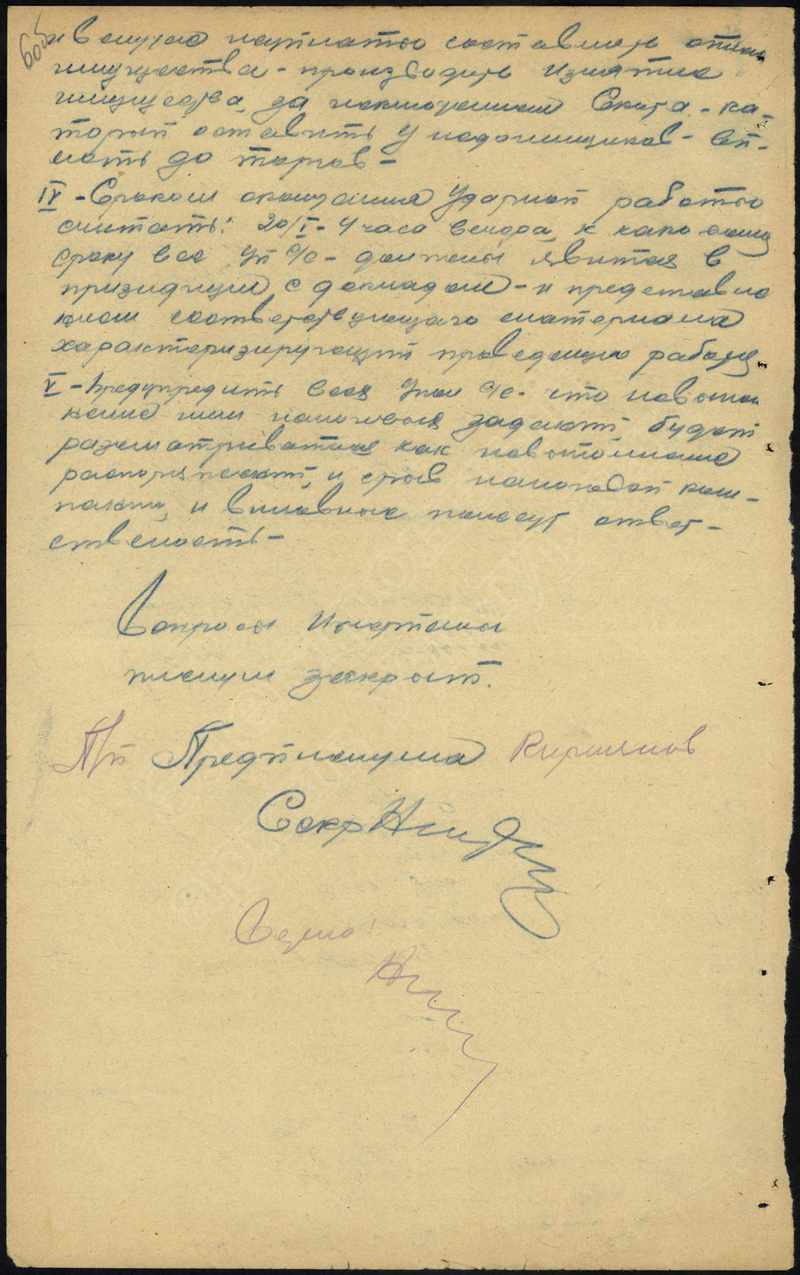 и в случае неуплаты составлять опись
имущества - производить изъятие
имущества, за исключением скота - ка-
торый оставить у недоимщиков - вп-
лоть до торгов -
IV - Сроком окончания ударной работы
считать: 20/I - 4 часа вечора, к како
сроку все Уп с/с - должны явится в
призидиум с докладом - и представле
нием соответствующаго материала
характеризирующий проведенную работу
V - Предупредить всех Упол с/с - что невыпол
нение ими налоговых заданий, будет
разсматриватся как невыполнение
распоряжений, и срыв налоговой ком-
пании, и виновные понесут ответ-
ственость -
Вопросы исчерпаны
пленум закрыт.
Пп Предпленума Кирьянов
Секр
Верно: